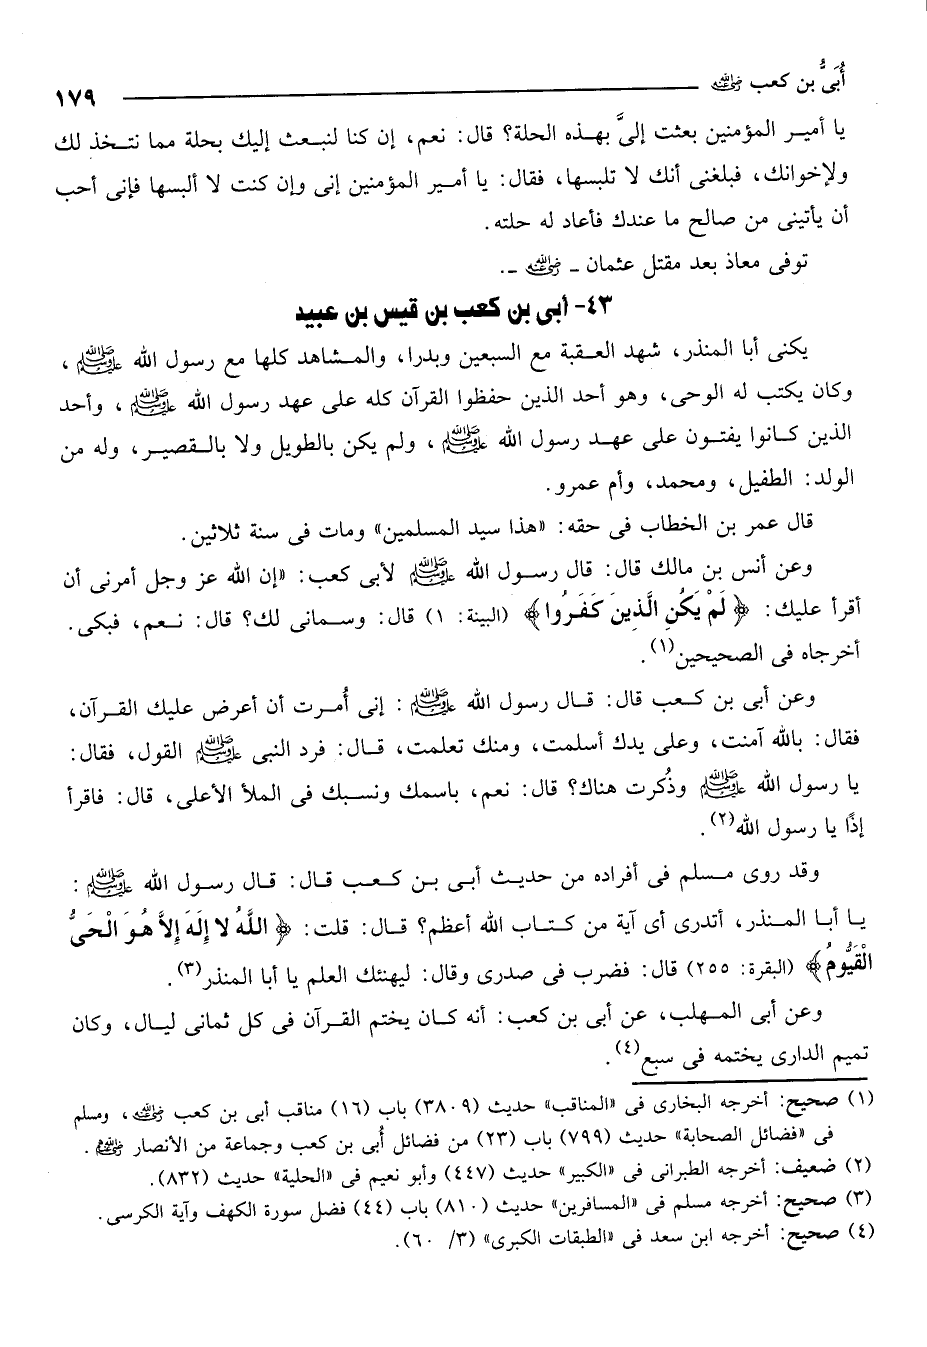 أُبىُّ بن كعب رضي الله عنه ١٧٩
يا أمير المؤمنين بعثت إلىَّ بهذه الحلة؟ قال: نعم، إن كنا لنبعث إليك بحلة مما نتخذ لك
ولإخوانك، فبلغنى أنك لا تلبسها، فقال: يا أمير المؤمنين إنى وإن كنت لا ألبسها فإنى أحب
أن يأتينى من صالح ما عندك فأعاد له حلته.
توفى معاذ بعد مقتل عثمان ـ رضي الله عنه ـ.
٤٣- أبى بن كعب بن قيس بن عبيد
يكنى أبا المنذر، شهد العقبة مع السبعين وبدرا، والمشاهد كلها مع رسول الله ﷺ ،
وكان يكتب له الوحى، وهو أحد الذين حفظوا القرآن كله على عهد رسول الله ﷺ ، وأحد
الذين كانوا يفتون على عهد رسول الله ﷺ ، ولم يكن بالطويل ولا بالقصير، وله من
الولد: الطفيل، ومحمد، وأم عمرو.
قال عمر بن الخطاب فى حقه: «هذا سيد المسلمين» ومات فى سنة ثلاثين.
وعن أنس بن مالك قال: قال رسول الله ﷺ لأبى كعب: «إن الله عز وجل أمرنى أن
أقرأ عليك: ﴿ لَمْ يَكُنِ الَّذِينَ كَفَرُوا ﴾ (البينة: ١) قال: وسمانى لك؟ قال: نعم، فبكى.
أخرجاه فى الصحيحين(١).
وعن أبى بن كعب قال: قال رسول الله ﷺ : إنى أُمرت أن أعرض عليك القرآن،
فقال: بالله آمنت، وعلى يدك أسلمت، ومنك تعلمت، قال: فرد النبى ﷺ القول، فقال:
يا رسول الله ﷺ وذُكرت هناك؟ قال: نعم، باسمك ونسبك فى الملأ الأعلى، قال: فاقرأ
إذًا يا رسول الله(٢).
وقد روى مسلم فى أفراده من حديث أبى بن كعب قال: قال رسول الله ﷺ :
يا أبا المنذر، أتدرى أى آية من كتاب الله أعظم؟ قال: قلت: ﴿ اللَّهُ لا إِلَهَ إِلاَّ هُوَ الْحَىُّ
الْقَيُّومُ ﴾ (البقرة: ٢٥٥) قال: فضرب فى صدرى وقال: ليهنئك العلم يا أبا المنذر(٣).
وعن أبى المهلب، عن أبى بن كعب: أنه كان يختم القرآن فى كل ثمانى ليال، وكان
تميم الدارى يختمه فى سبع(٤).
(١) صحيح: أخرجه البخارى فى «المناقب» حديث (٣٨٠٩) باب (١٦) مناقب أبى بن كعب رضي الله عنه، ومسلم
فى «فضائل الصحابة» حديث (٧٩٩) باب (٢٣) من فضائل أُبى بن كعب وجماعة من الأنصار رضي الله عنهم.
(٢) ضعيف: أخرجه الطبرانى فى «الكبير» حديث (٤٤٧) وأبو نعيم فى «الحلية» حديث (٨٣٢).
(٣) صحيح: أخرجه مسلم فى «المسافرين» حديث (٨١٠) باب (٤٤) فضل سورة الكهف وآية الكرسى.
(٤) صحيح: أخرجه ابن سعد فى «الطبقات الكبرى» (٣/ ٦٠).